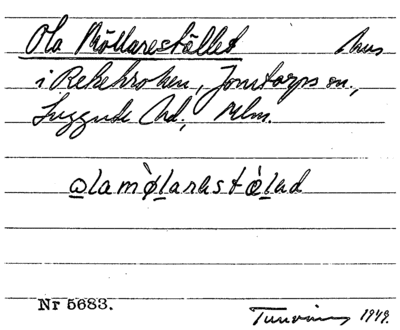 Ola Möllarestället hus
i Rekekroken, Jonstorps sn.,
Luggude hd., Mlm.
o̲lamø̀l̲arɐstæ̀l̲əd
Nr 5683.
1949.